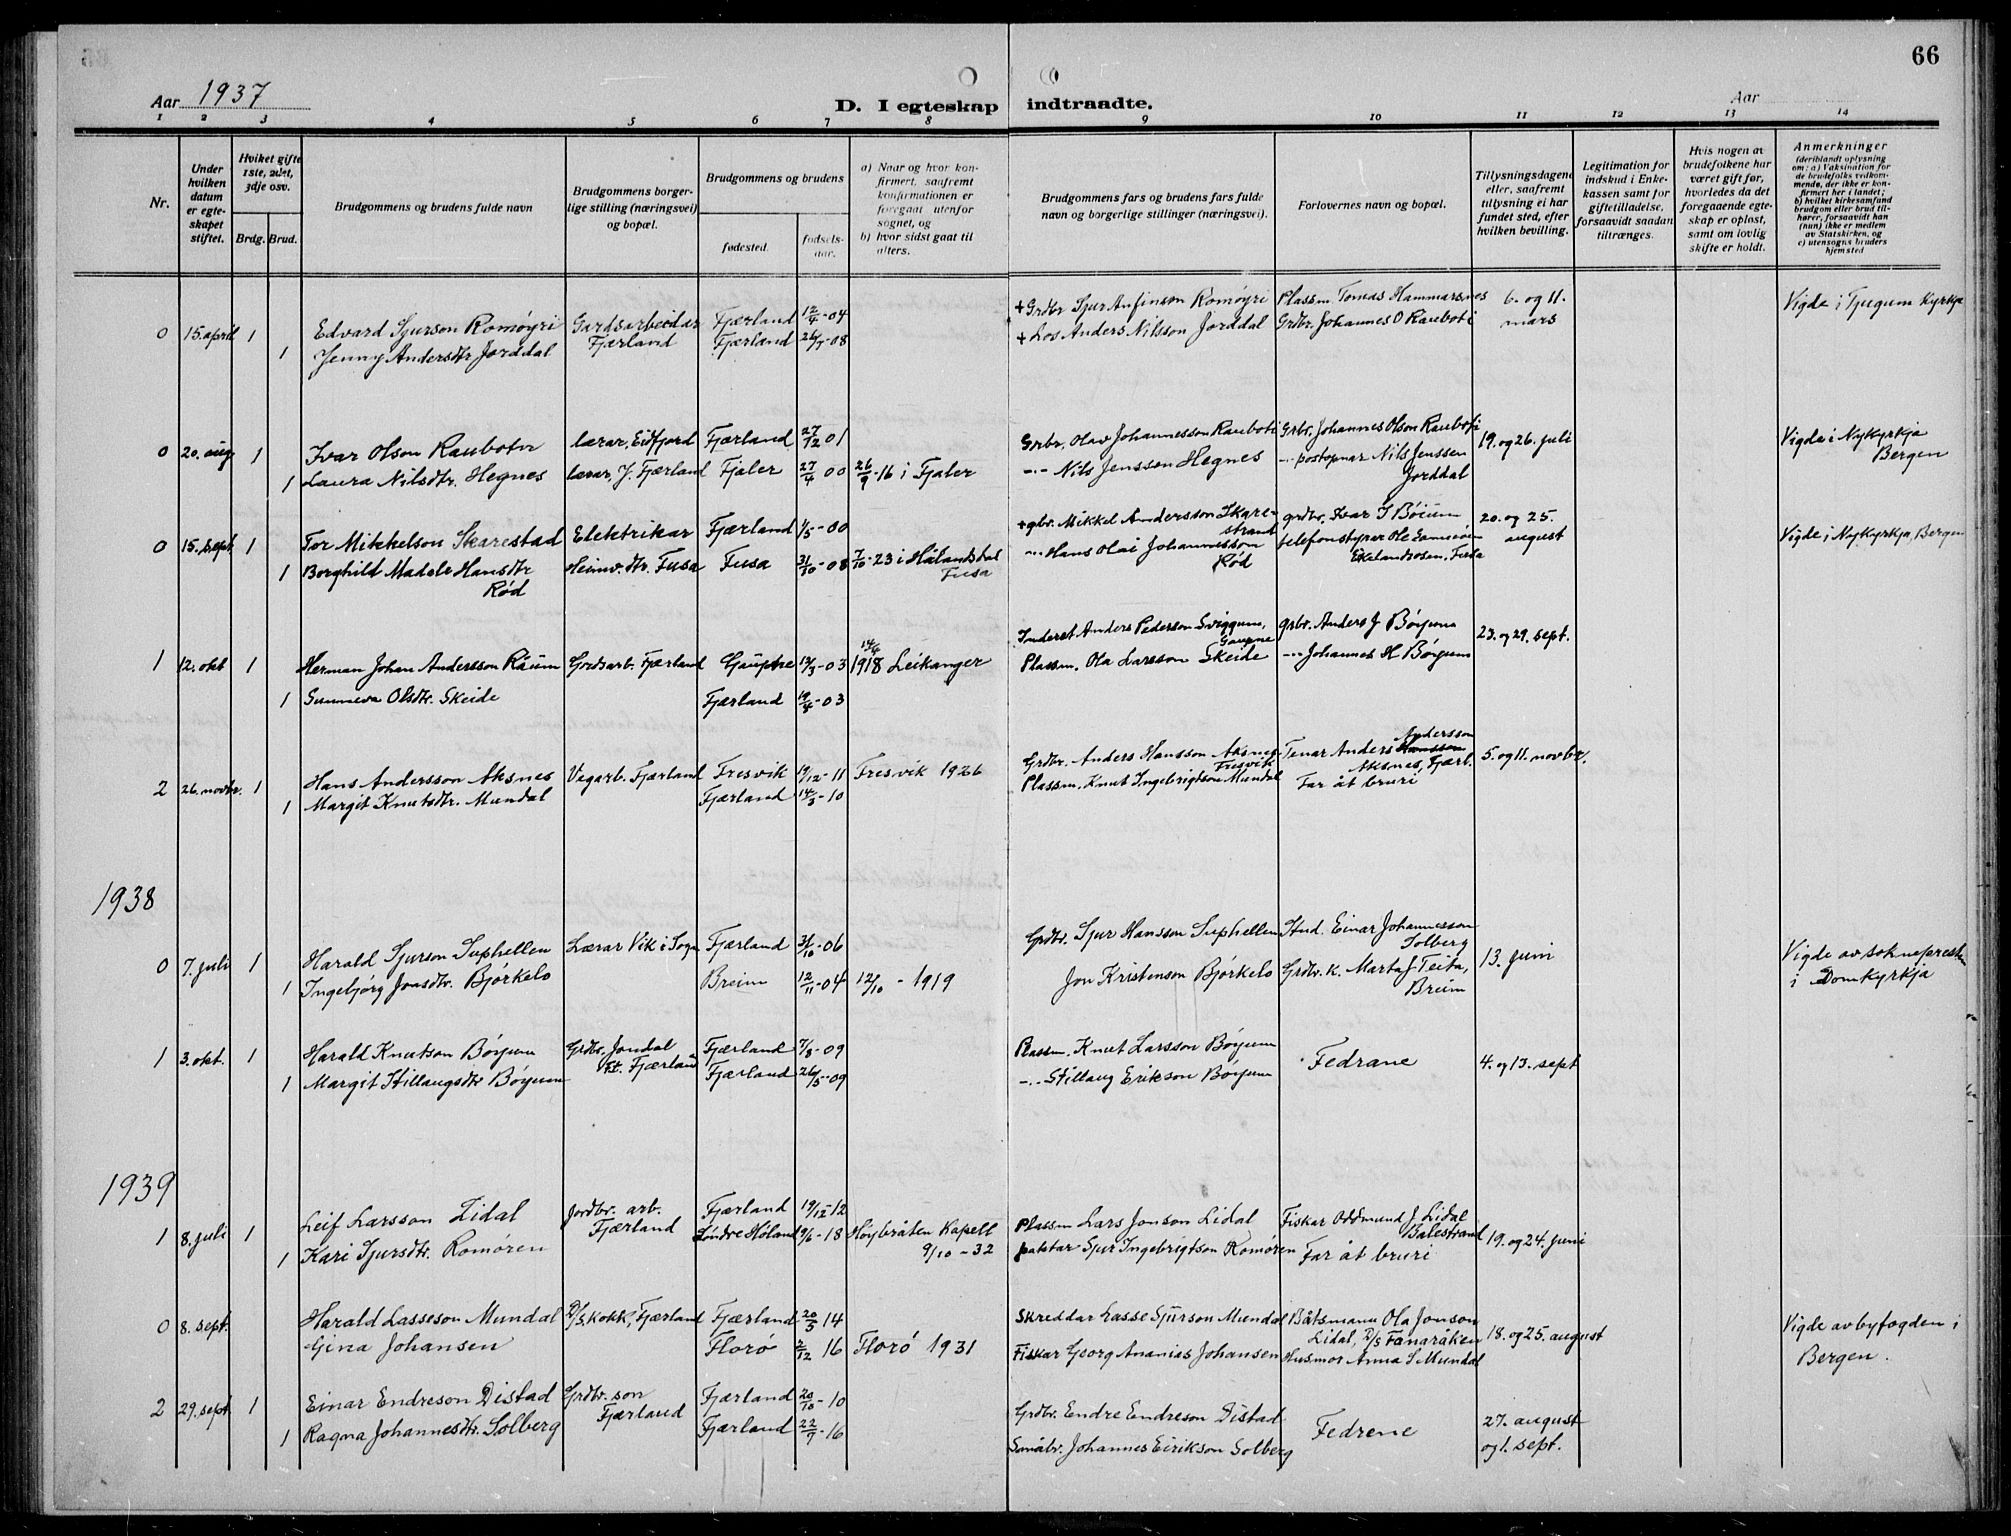 66
Aar 1937
D. I egteskap indtraadte.
Aar
1 2 3 4 5 6 7 8 9 10 11 12 13 14
Nr.
Under hvilken datum er egteskapet stiftet.
Hviket gifte 1ste, 2det, 3dje osv.
Brdg. Brud.
Brudgommens og brudens fulde navn
Brudgommens borgerlige stilling (næringsvei) og bopæl.
Brudgommens og brudens
fødested.
fødselsaar.
a) Naar og hvor konfirmert, saafremt konfirmationen er foregaat utenfor sognet, og
b) hvor sidst gaat til alters.
Brudgommens fars og brudens fars fulde navn og borgerlige stillinger (næringsvei).
Forlovernes navn og bopæl.
Tillysningsdagene eller, saafremt tillysning ei har fundet sted, efter hvilken bevilling.
Legitimation for indskud i Enkekassen samt for giftetilladelse, forsaavidt saadan tiltrænges.
Hvis nogen av brudefolkene har været gift før, hvorledes da det foregaaende egteskap er opløst, samt om lovlig skifte er holdt.
Anmerkninger (deriblandt oplysning om: a) Vaksination for de brudefolks vedkommende, der ikke er konfirmert her i landet; b) hvilket kirkesamfund brudgom eller brud tilhører, forsaavidt han (hun) ikke er medlem av Statskirken, og c) utensogns bruders hjemsted
0 15. april 1 Edvard Sjurson Romøyri Gardsarbeidar Fjærland Fjærland 12/4-04 + Grdbr Sjur Anfinson Romøyri Plassm. Tomas Hammarsnes 6. og 11. mars Vigde i Tjugum Kyrkja
1 Jenny Andersdtr Jorddal Fjærland 26/5-08 + Los Anders Nilsson Jorddal Grdbr. Johannes O Rauboti
0 20. aug 1 Ivar Olson Raubotn lærar, Eidfjord Fjærland 27/12 01 Grbr. Olav Johannesson Rauboti Grbr. Johannes Olson Rauboti 19. og 26. juli Vigde i Nykyrkja Bergen
1 Laura Nilsdtr. Hegnes lærar, J. Fjærland Fjaler 27/4 00 26/9-16 i Fjaler -"- Nils Jensson Hegnes -"- postopnar Nils Jenssen Jorddal
0 15. sept. 1 Tor Mikkelson Skarestad Elektrikar Fjærland 1/5-00 + gbr. Mikkel Andersson Skarestrand grdbr. Ivar J Bøium 20. og 25. august Vigde i Nykyrkja, Bergen
1 Borghild Madele Hansdtr Rød Heimv. dtr. Fusa Fusa 31/10-08 7/10-23 i Hålandsdal Fusa -"- Hans Olai Johannesson Rød telefonstyrer Ole Eikelandsosen, Fusa
1 12. okt 1 Herman Johan Andersson Raum Gardsarb. Fjærland Gaupne 12/3-03 14/4 1918 Leikanger Inderst Anders Pederson Sviggum, Gaupne grbr. Anders J Bøyum 23. og 29. sept.
1 Sunneva Olsdtr. Skeide Fjærland 19/4-03 Plassm. Ola Larsson Skeide -"- Johannes H Bøyum
2 26. novbr. 1 Hans Andersson Aksnes Vegarb. Fjærland Fresvik 19/12-11 Fresvik 1926 Grdbr. Anders Hansson Aksnes Fresvik Tenar Anders Andersson Aksnes, Fjærl. 5. og 11. novbr.
1 Margit Knutsdtr. Mundal Fjærland 14/3-10 Plassm. Knut Ingebrigtson Mundal Far åt bruri
1938
0 7. juli 1 Harald Sjurson Suphellen Lærar Vik i Sogn Fjærland 31/10-06 Grdbr. Sjur Hansson Suphellen Stud. Einar Johannesson Solberg 13. juni Vigde av soknepresten i Domkyrkja
1 Ingebjørg Jonsdtr. Bjørkelo Breim 12/11-04 12/10-1919 Jon Kristenson Bjørkelo Grdbr. k. Marta J Teita, Breim
1 3. okt. 1 Harald Knutson Bøyum Grdbr. Jondal Fjærland Fjærland 7/8-09 Plassm. Knut Larsson Bøyum Fedrane 4. og 13. sept
1 Margit Stillaugsdtr Bøyum Fjærland 26/5-09 -"- Stillaug Erikson Bøyum
1939
1 8. juli 1 Leif Larsson Lidal Jordbr. arb. Fjærland Fjærland 19/12-12 Plassm Lars Jonson Lidal Fiskar Oddmund J Lidal Balestrand 19. og 24. juni
1 Kari Sjursdtr. Romøren Søndre Høland 9/6-18 Høybråten Kapell 9/10-32 Sjur Ingebrigtson Romøren Far åt bruri
0 8. sept. Harald Lasseson Mundal D/S kokk, Fjærland Fjærland 20/5 14 Skreddar Lasse Sjurson Mundal Båtsmann Ola Jonson Lidal, D/S Fanaråken 18. og 25. august Vigde av byfogden i Bergen.
Gina Johansen Florø 2/12 16 Florø 1931 Fiskar Georg Ananias Johansen Husmor Anna S Mundal
2 29. sept. 1 Einar Endreson Distad Grdbr. son Fjærland Fjærland 20/10-10 Grdbr. Endre Endreson Distad Fedrene 27. august og 1. sept.
1 Ragna Johannesdtr. Solberg Fjærland 22/9-16 Småbr. Johannes Eirikson Solberg